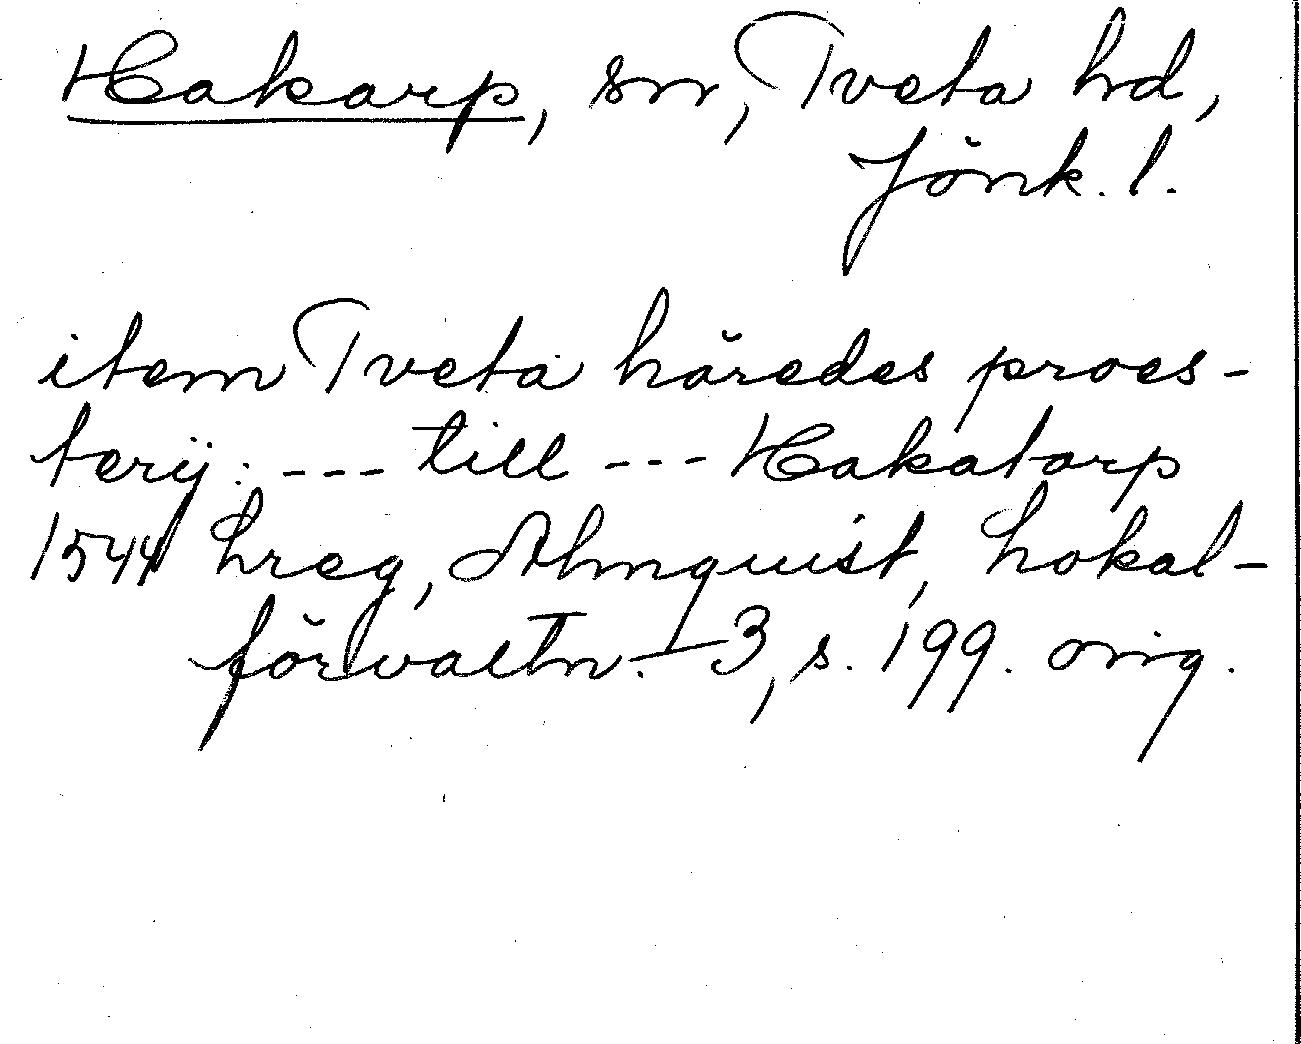 Hakarp, sn, Tveta hd,
Jönk. l.
item Tveta häredes proes-
terij: --- till --- Hakatorp
1544 hreg, Almquist, Lokal-
förvaltn. 3, s. 199. orig.